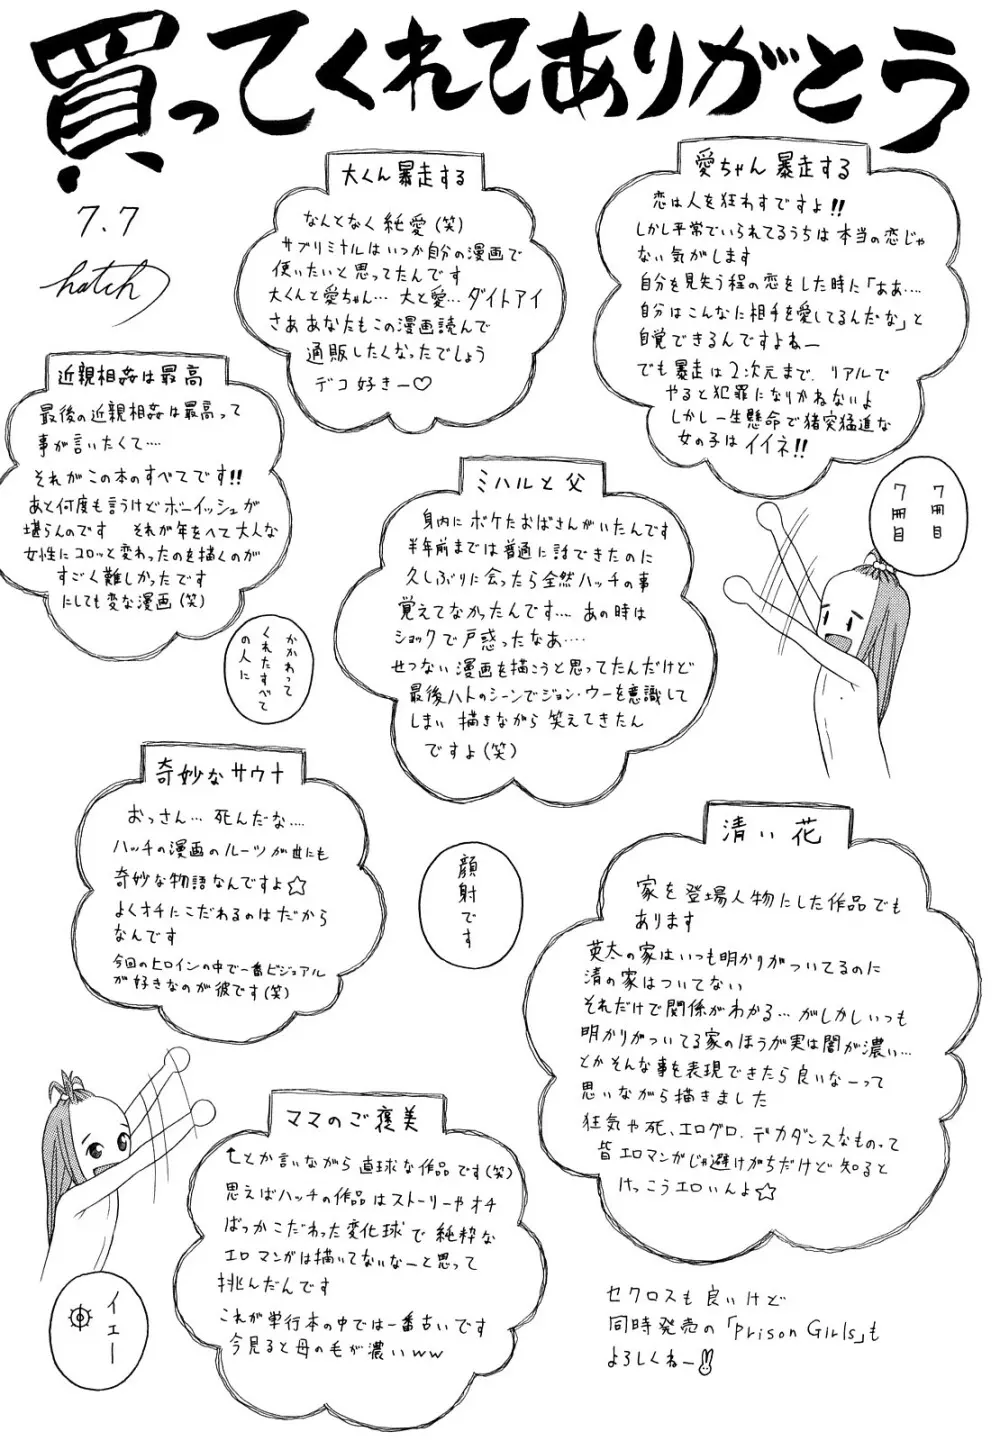 買ってくれてありがとう
7.7
hatch
大くん暴走する
なんとなく純愛(笑)
サブリミナルはいつか自分の漫画で
使いたいと思ってたんです
大くんと愛ちゃん… 大と愛… ダイトアイ
さああなたもこの漫画読んで
通販したくなったでしょう
デコ好きー♡
愛ちゃん暴走する
恋は人を狂わすですよ!!
しかし平常でいられてるうちは本当の恋じゃ
ない気がします
自分を見失う程の恋をした時に「ああ….
自分はこんなに相手を愛してるんだな」と
自覚できるんですよねー
でも暴走は2次元まで、リアルで
やると犯罪になりかねないよ
しかし一生懸命で猪突猛進な
女の子はイイネ!!
近親相姦は最高
最後の近親相姦は最高って
事が言いたくて….
それがこの本のすべてです!!
あと何度も言うけどボーイッシュが
堪らんのです それが年をへて大人な
女性にコロッと変わったのを描くのが
すごく難しかったです
にしても変な漫画(笑)
ミハルと父
身内にボケたおばさんがいたんです
半年前までは普通に話できたのに
久しぶりに会ったら全然ハッチの事
覚えてなかったんです…. あの時は
ショックで戸惑ったなあ….
せつない漫画を描こうと思ってたんだけど
最後ハトのシーンでジョン・ウーを意識して
しまい 描きながら 笑えてきたん
ですよ(笑)
7冊目
7冊目
かかわって
くれたすべて
の人に
奇妙なサウナ
おっさん… 死んだな….
ハッチの漫画のルーツが世にも
奇妙な物語なんですよ☆
よくオチにこだわるのはだから
なんです
今回のヒロインの中で一番ビジュアル
が好きなのが彼です(笑)
顔射です
清い花
家を登場人物にした作品でも
あります
英太の家はいつも明かりがついてるのに
清の家はついてない
それだけで関係がわかる… がしかしいつも
明かりがついてる家のほうが実は闇が濃い…
とかそんな事を表現できたら良いなーって
思いながら描きました
狂気や死、エログロ、デカダンスなものって
皆エロマンガじゃ避けがちだけど知ると
けっこうエロいんよ☆
ママのご褒美
↑とか言いながら 直球な作品です(笑)
思えばハッチの作品はストーリーやオチ
ばっかこだわった変化球で 純粋な
エロマンガは描いてないなーと思って
挑んだんです
これが単行本の中では一番古いです
今見ると母の毛が濃いww
イェー
セクロスも良いけど
同時発売の「Prison Girls」も
よろしくねー